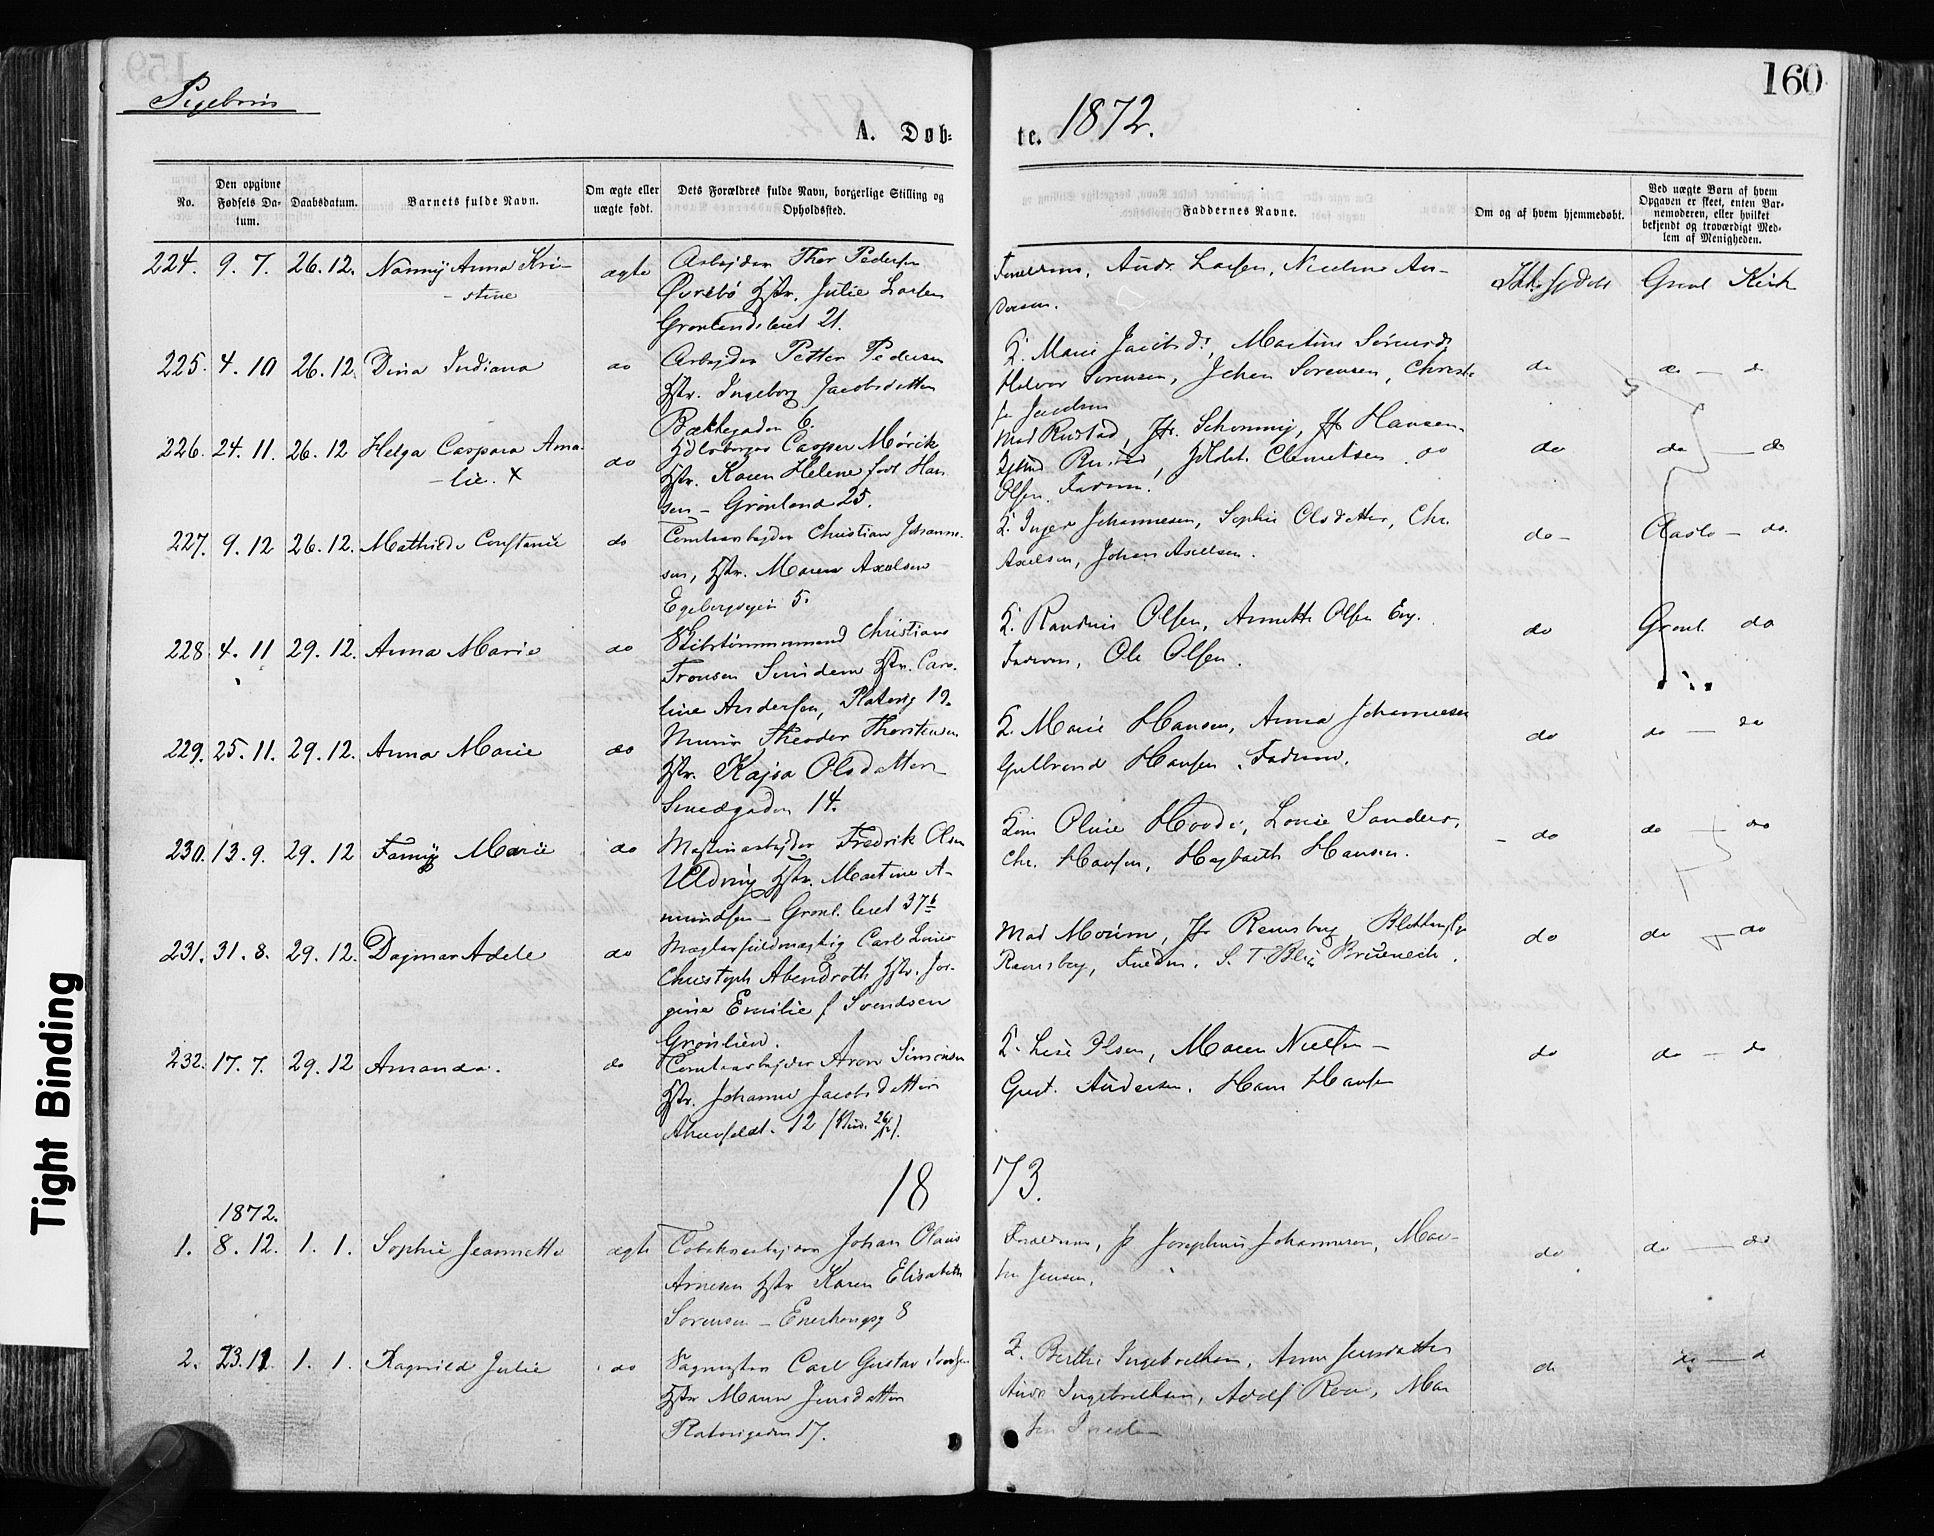 159
160
Pigebørn
A. Døb-
te. 1872.
No.
Den opgivne Fødsels Da-
tum.
Daabsdatum.
Barnets fulde Navn.
Om ægte eller
uægte født.
Dets Forældres fulde Navn, borgerlige Stilling og
Opholdssted.
Faddernes Navne.
Om og af hvem hjemmedøbt.
Ved uægte Børn af hvem
Opgaven er skeet, enten Bar-
nemoderen, eller hvilket
bekjendt og troværdigt Med-
lem af Menigheden.
224. 9. 7. 26. 12. Nanny Anna Kri-
stine
ægte
Arbejder Thor Pedersen
Øvrebø Hstr. Julie Larsen
Grønlandsleret 21.
Forældrene, Andr. Larsen, Nicoline An-
dersen.
Grønl Kirk
225. 4. 10 26. 12. Dina Indiana
do
Arbejder Petter Pedersen
Hstr. Ingeborg Jacobsdatter
Bækkegaden 6.
K. Marie Jacobsd., Martine Sørensd.
Halvor Sørensen, Johan Sørensen, Christ.
Jacobsen
do do — do
226. 24. 11. 26. 12 Helga Caspara Ama-
lie. X
do
Casper Mørik
Hstr. Karen Helene født Han-
sen – Grønland 25.
Mad Rustad, Jfr. Schonning, Jfr Hansen
Rustad, Clemetsen do
Olsen. Faderen.
do do — do
227. 9. 12 26. 12. Mathilde Constance
do
Tomtearbejder Christian Johanne-
sen, Hstr. Maren Axelsen
Egebergveien 5.
K. Inger Johannesen, Sophie Olsdatter, Chr.
Axelsen, Johan Axelsen.
do – Aaslo – do.
228 4. 11 29. 12. Anna Marie
do
Skibstømmermand Christian
Tronsen Hstr. Caro-
line Andersen, Platovg 12.
K. Randine Olsen, Annette Olsen Eng.
Faderen, Ole Olsen.
do Grønl. do
229. 25. 11. 29. 12. Anna Marie
do
Murer Theodor Thorstensen
Hstr. Kajsa Olsdatter
Smedgaden 14.
K. Marie Hansen, Anna Johannesen
Gulbrand Hansen, Faderen.
do do — do
230. 13. 9. 29. 12 Fanny Marie
do
Maskinarbejder Fredrik Olsen
Hstr. Martine A-
mundsen – Grønl. leret 37b
Kone Oline Hovde, Louise Sanders,
Chr. Hansen, Hansen.
– do do — do
231. 31. 8. 29. 12. Dagmar Adele
do
Mæglerfuldmægtig Carl Louis
Christoph Abendroth Hstr. Jør-
gine Emilie f Svendsen
Grønlien.
Mad Jfr Ramsberg,
Ramsberg, Faderen.
do do — do
232. 17. 7. 29. 12 Amanda.
do
Tomtearbejder Aron Simonsen
Hstr. Johanne Jacobsdatter
Akersveldt. 12
K. Lise Olsen, Maren Nielsen –
Gust. Andersen. Hans Hansen
do do — do
18 73.
1872.
1. 8. 12. 1. 1. Sophie Jeannette
ægte
Tobaksarbejder Johan Olaus
Arnesen Hstr Karen Elisabeth
Sørensen – Enerhaugsg 8
Forældrene, Jf Josephine Johannesen, Mar-
tin Jensen.
do do — do
2. 23. 11. 1. 1. Ragnild Julie
do
Sagmester Carl Gustav
Hstr Maren Jensdatter
Platougaden 17.
K. Berthe Ingebrethsen, Anne Jensdatter
Andr Ingebrethsen, Adolf Roa, Mar
do do — d
Tight Binding